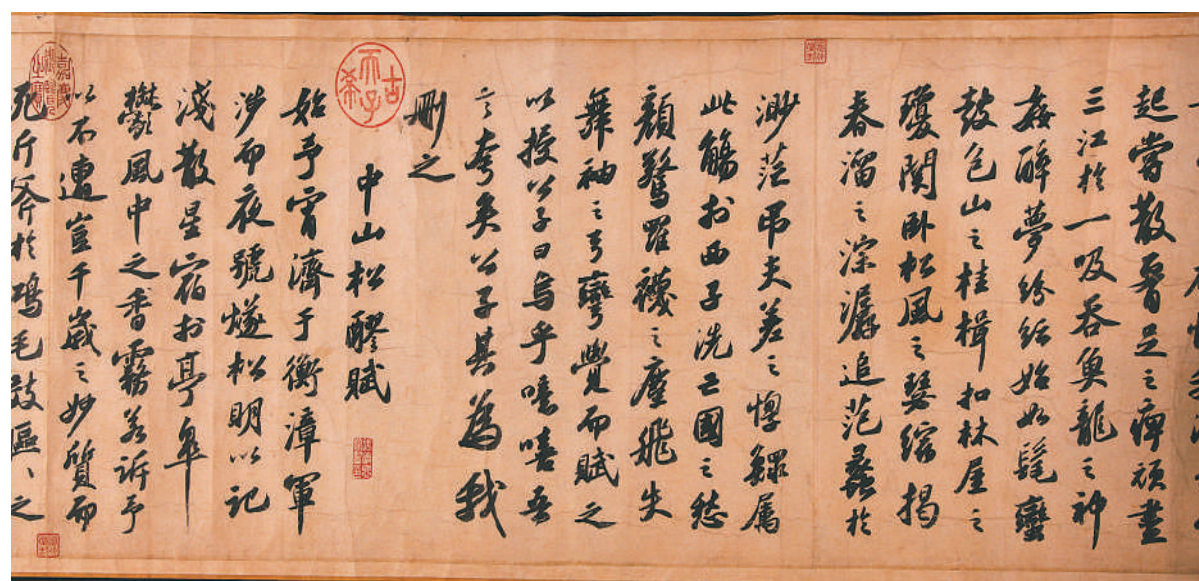 起嘗散腰足之痺頑盡
三江於一吸吞魚龍之神
姦醉夢紛紜始如髦蠻
鼓包山之桂楫扣林屋之
瓊關卧松風之瑟縮揭
春溜之淙潺追范蠡於
渺茫吊夫差之惸鰥屬
此觴於西子洗亡國之愁
顏驚羅襪之塵飛失
舞袖之弓彎覺而賦之
以授公子曰烏乎噫嘻吾
言夸矣公子其為我
刪之
古希天子
中山松醪賦
始予宵濟于衡漳軍
涉而夜號燧松明以記
淺散星宿於亭皋
鬱風中之香霧若訴予
以不遭豈千歲之妙質而
死斤斧於鴻毛效區區之
嘉慶御覽之寶